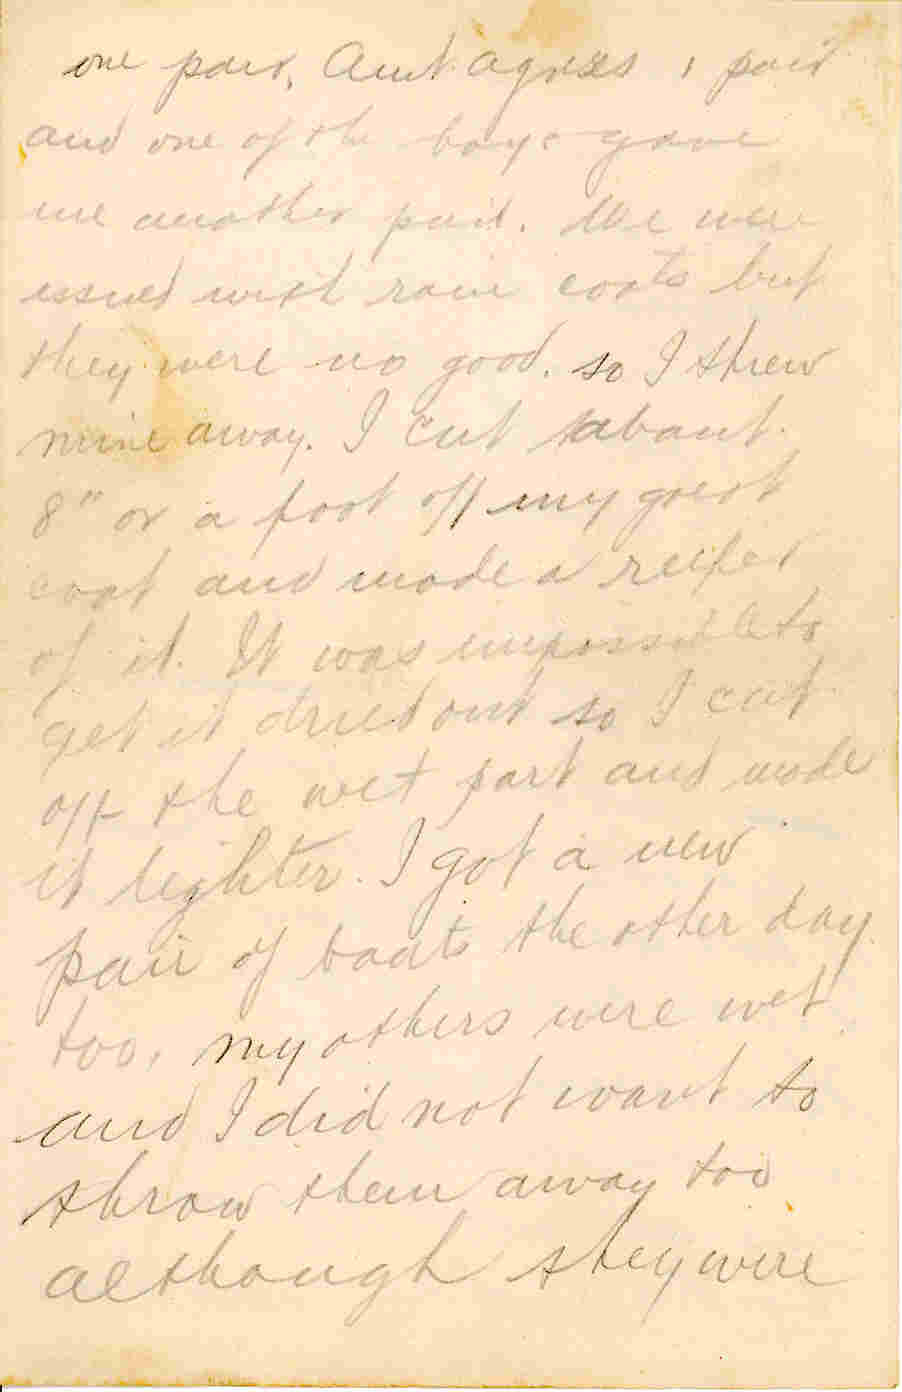 one pair, Aunt Agnes 1 pair
and one of the boys gave
me another pair. We were
issued with rain coats but
they were no good. so I threw
mine away. I cut about
8" or a foot off my great
coat and made a reefer
of it. It was impossible to
get it dried out so I cut
off the wet part and made
it lighter. I got a new
pair of boots the other day
too, my others were wet
and I did not want to
throw them away too
although they were